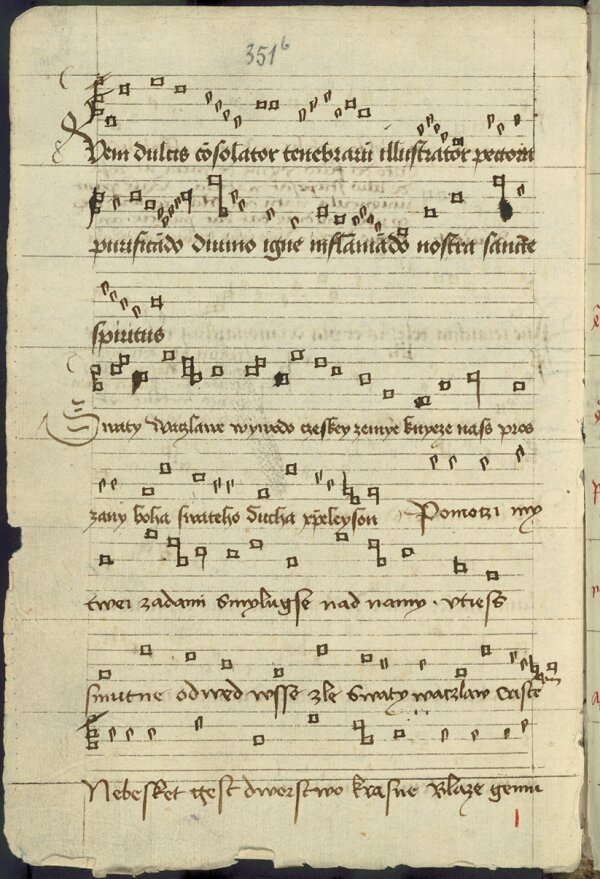 351b
Veni dulcis cōsolator tenebrarū illustrator pectora
purificādo diuino igne inflāmādo nostra sancte
spiritus
Swaty waczlawe wywodo czeskey zemye knyeze nass pros
zany boha swateho ducha xp̄eleyson Pomoczi my
twei zadami Smylugse nad namy . vtiess
smutne odwed wsse zle Swaty waczlaw Criste
Nebesket gest dworstwo krasne Blaze gemu